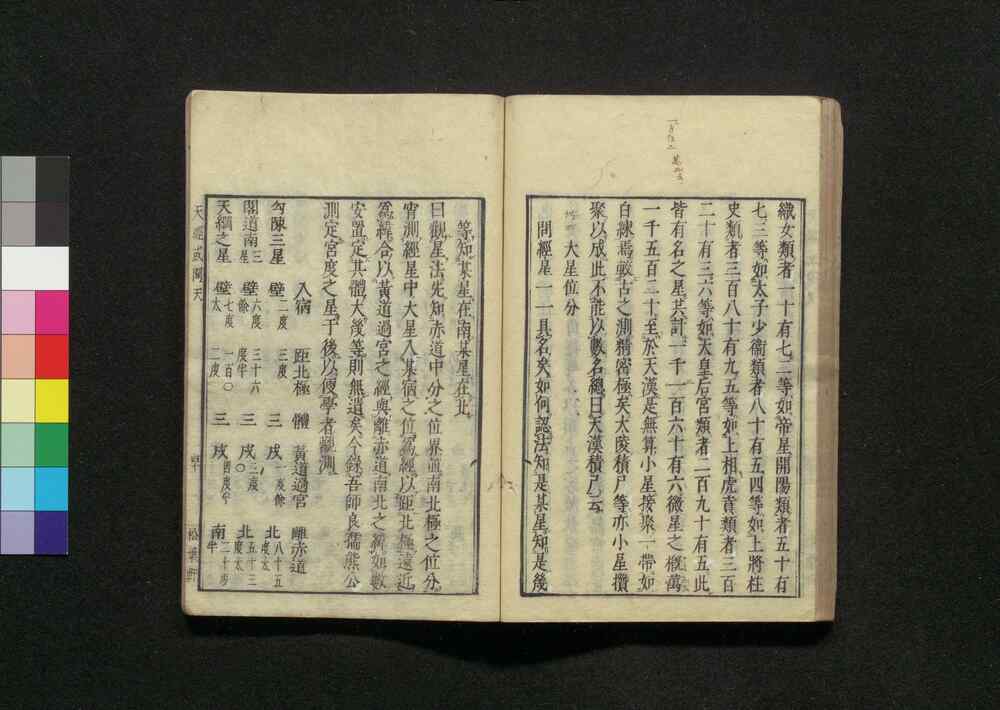 織女類者一十有七二等如帝星開陽類者五十有
七三等如太子少衛類者八十有五四等如上將柱
史類者三百八十有九五等如上相虎賁類者三百
二十有三六等如天皇后宮類者二百九十有五此
皆有名之星共計一千一百六十有六微星之概萬
一千五百二十至於天漢是無算小星接聚一帶如
白練焉驗古之測猶密極矣大陵積尸等亦小星攢
聚以成此不能以數名總曰天漢積尸云
大星位分
問經星一一具名矣如何認法知是某星知是幾
等知某星在南某星在北
曰觀星法先知赤道中分之位界並南北極之位分
宵測經星中大星入某宿之位為經以距北極遠近
為緯合以黃道過宮之經與離赤道南北之緯如數
安置定其體大後等則無遺矣今錄吾師良孺熊公
測定宮度之星于後以便學者觀測
入宿 距北極 體 黃道過宮 離赤道
勾陳三星 壁二度 三度 三 戌一度餘 北八十五度太
閣道南三星 壁六度餘 三十六度半 三 戌三度〇 北五十三度太
天綱之星 壁七度太 一百〇二度 三 戌四度半 南二十度半
天經或問天